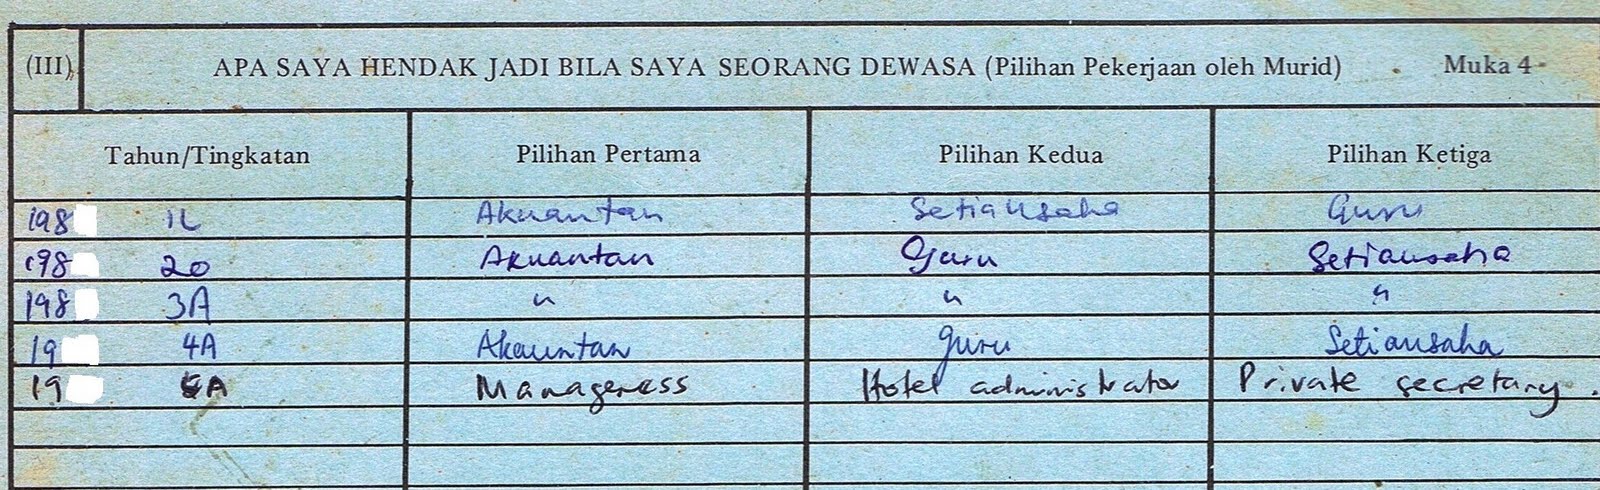 (III) APA SAYA HENDAK JADI BILA SAYA SEORANG DEWASA (Pilihan Pekerjaan oleh Murid) Muka 4
Tahun/Tingkatan Pilihan Pertama Pilihan Kedua Pilihan Ketiga
198 1L Akauntan Setiausaha Guru
198 20 Akauntan Guru Setiausaha
198 3A " " "
19 4A Akauntan Guru Setiausaha
19 5A Manageress Hotel administrator Private secretary.